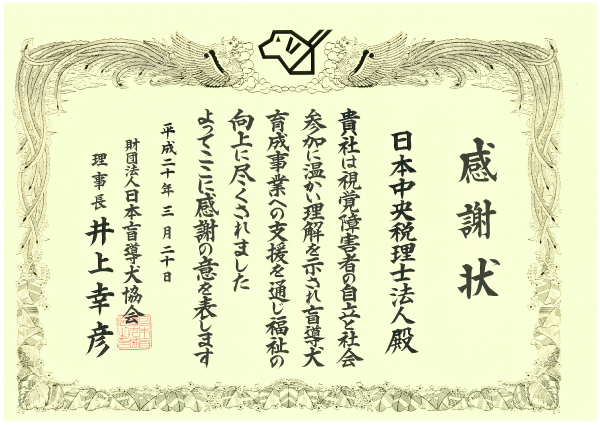 感謝状
日本中央税理士法人殿
貴社は視覚障害者の自立と社会
参加に温かい理解を示され盲導犬
育成事業への支援を通じ福祉の
向上に尽くされました
よってここに感謝の意を表します
平成二十年三月二十日
財団法人日本盲導犬協会
理事長 井上幸彦